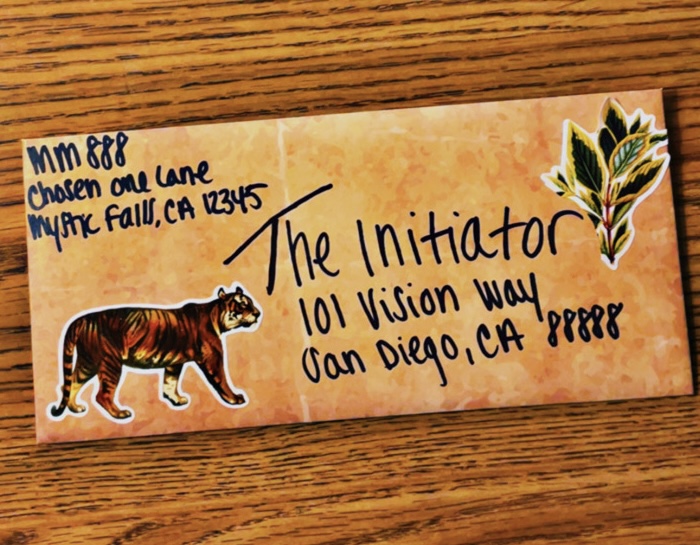 MM 888
Chosen one Lane
Mystic Falls, CA 12345
The Initiator
101 Vision Way
San Diego, CA 88888